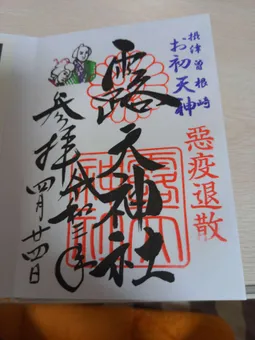 摂津曽根崎
お初天神
悪疫退散
露天神社
参拝令和三年
四月廿四日